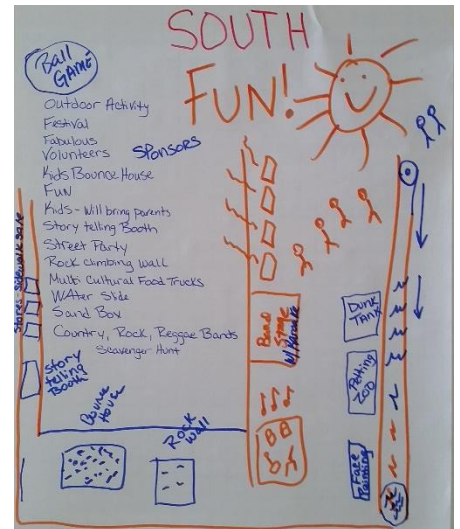 SOUTH
FUN!
Ball
GAME
Outdoor Activity
Festival
Fabulous
Volunteers
Sponsors
Kids Bounce House
FUN
Kids - Will bring parents
Story telling Booth
Street Party
Rock climbing wall
Multi Cultural Food Trucks
WAter Slide
Sand Box
Country, Rock, Reggae Bands
Scavenger Hunt
Stores - sidewalk sale
Story
telling
Booth
Bounce
House
Rock
Wall
Band
Stage
w/Karaoke
Dunk
Tank
Petting
Zoo
Face
Painting